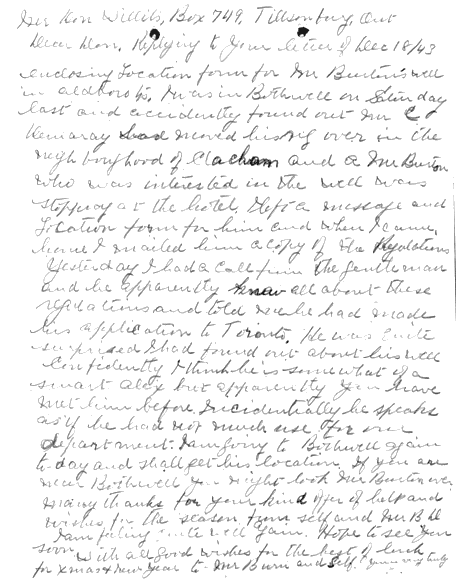 Mr Don Willits, Box 749, Tillsonburg, Ont
Dear Don, Replying to your letter of Dec 18/43
enclosing Location form for Mr Burton's well
in Aldboro tp, I was in Bothwell on Sunday
last and accidently found out Mr C
Kemaray had moved his rig over in the
neighbourghood of Clachan and a Mr Burton
who was interested in the well was
stopping at the hotel, I left a message and
Location form for him and when I came
home I mailed him a copy of the Regulations
Yesterday I had a call from the gentleman
and he apparently knew all about these
regulations and told me he had made
his application to Toronto. He was quite
surprised I had found out about his well
Confidently I think he is somewhat of a
smart alex but apparently you have
met him before, incidentially he speaks
as if he had not much use for our
department. I am going to Bothwell again
to-day and shall get his location. If you are
near Bothwell you might look Mr Burton over
many thanks for your kind offer of help and
wishes for the season, from self and Mr B
I am feeling quite well again. Hope to see you
soon with all good wishes for the best of luck
for xmas & New Year to Mr Burn and self. yours very truly